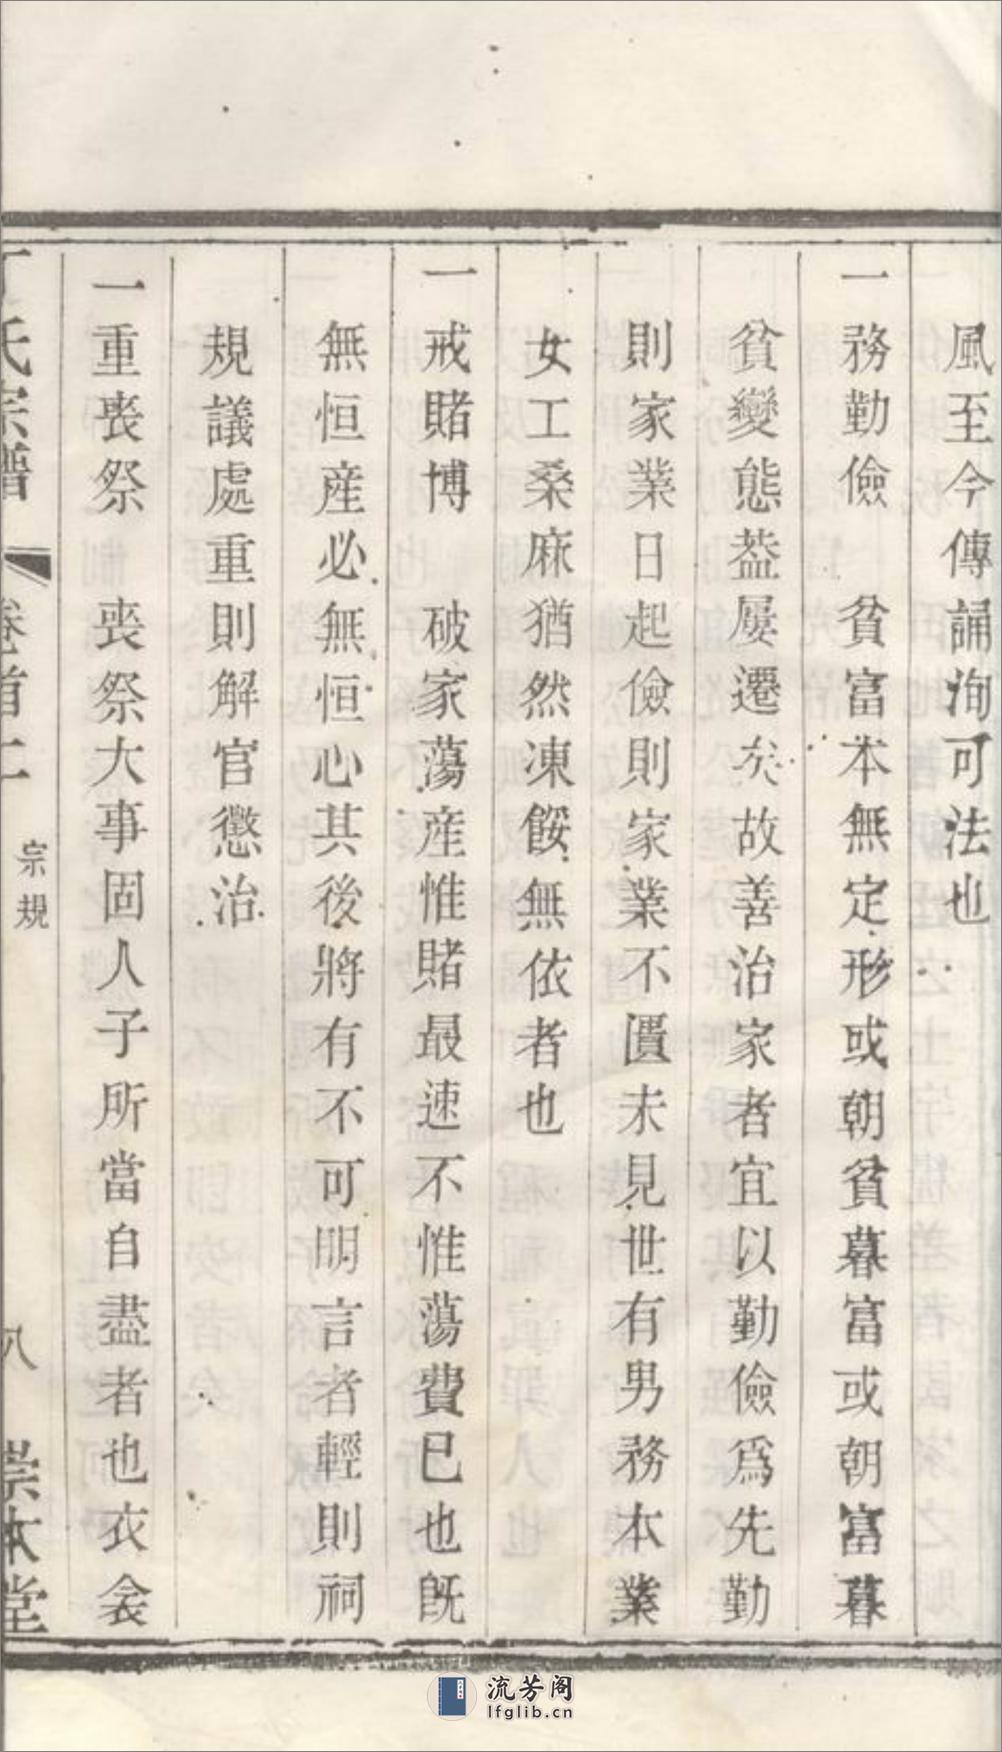 風至今傳誦洵可法也
一務勤儉　貧富本無定形或朝貧暮富或朝富暮
貧變態葢屢遷矣故善治家者宜以勤儉爲先勤
則家業日起儉則家業不匱未見世有男務本業
女工桑麻猶然凍餒無依者也
一戒賭博　破家蕩産惟賭最速不惟蕩費已也旣
無恒産必無恒心其後將有不可明言者輕則祠
規議處重則解官懲治
一重喪祭　喪祭大事固人子所當自盡者也衣衾
氏宗譜　卷首二　宗規　八　崇本堂
流芳阁
lfglib.cn